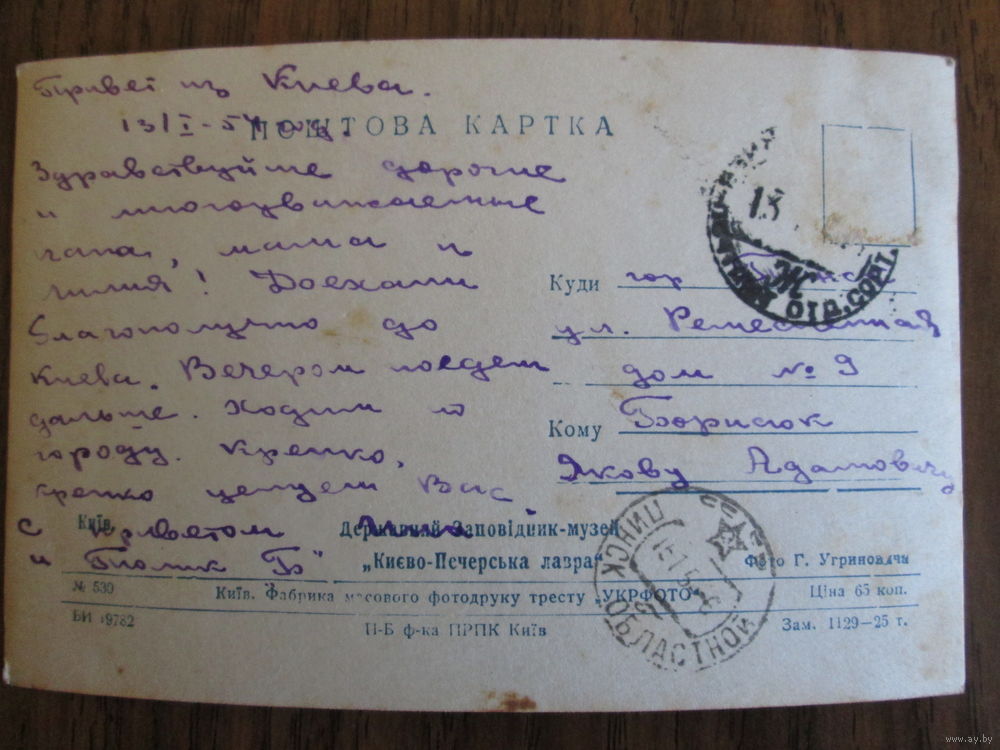 Привет из Киева.
13/I-54 год.
ПОШТОВА КАРТКА
Здравствуйте дорогие
и многоуважаемые
папа, мама и
Лилия! Доехали
благополучно до
Киева. Вечером поедем
дальше. Ходим по
городу. Крепко,
крепко целуем Вас
С приветом
и Толик Б
Куди гор
ул. Ремесленная
дом № 9
Кому Борисюк
Якову Адамовичу
13
ОТД.СОРТ.
ПИНСК ОБЛАСТНОЙ
СССР
Київ
Державний Заповідник-музей
„Києво-Печерська лавра"
Фото Г. Угриновича
№ 530
Київ. Фабрика масового фотодруку тресту „УКРФОТО"
Ціна 65 коп.
БИ 09782
Н-Б ф-ка ПРПК Київ
Зам. 1129—25 т.
www.ay.by